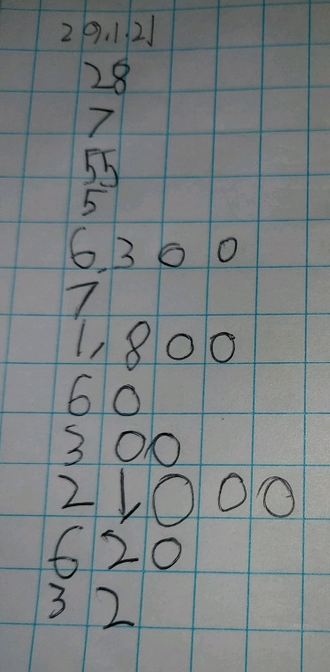 29.1.21
28
7
55
5
6,300
7
1,800
60
300
21,000
620
32